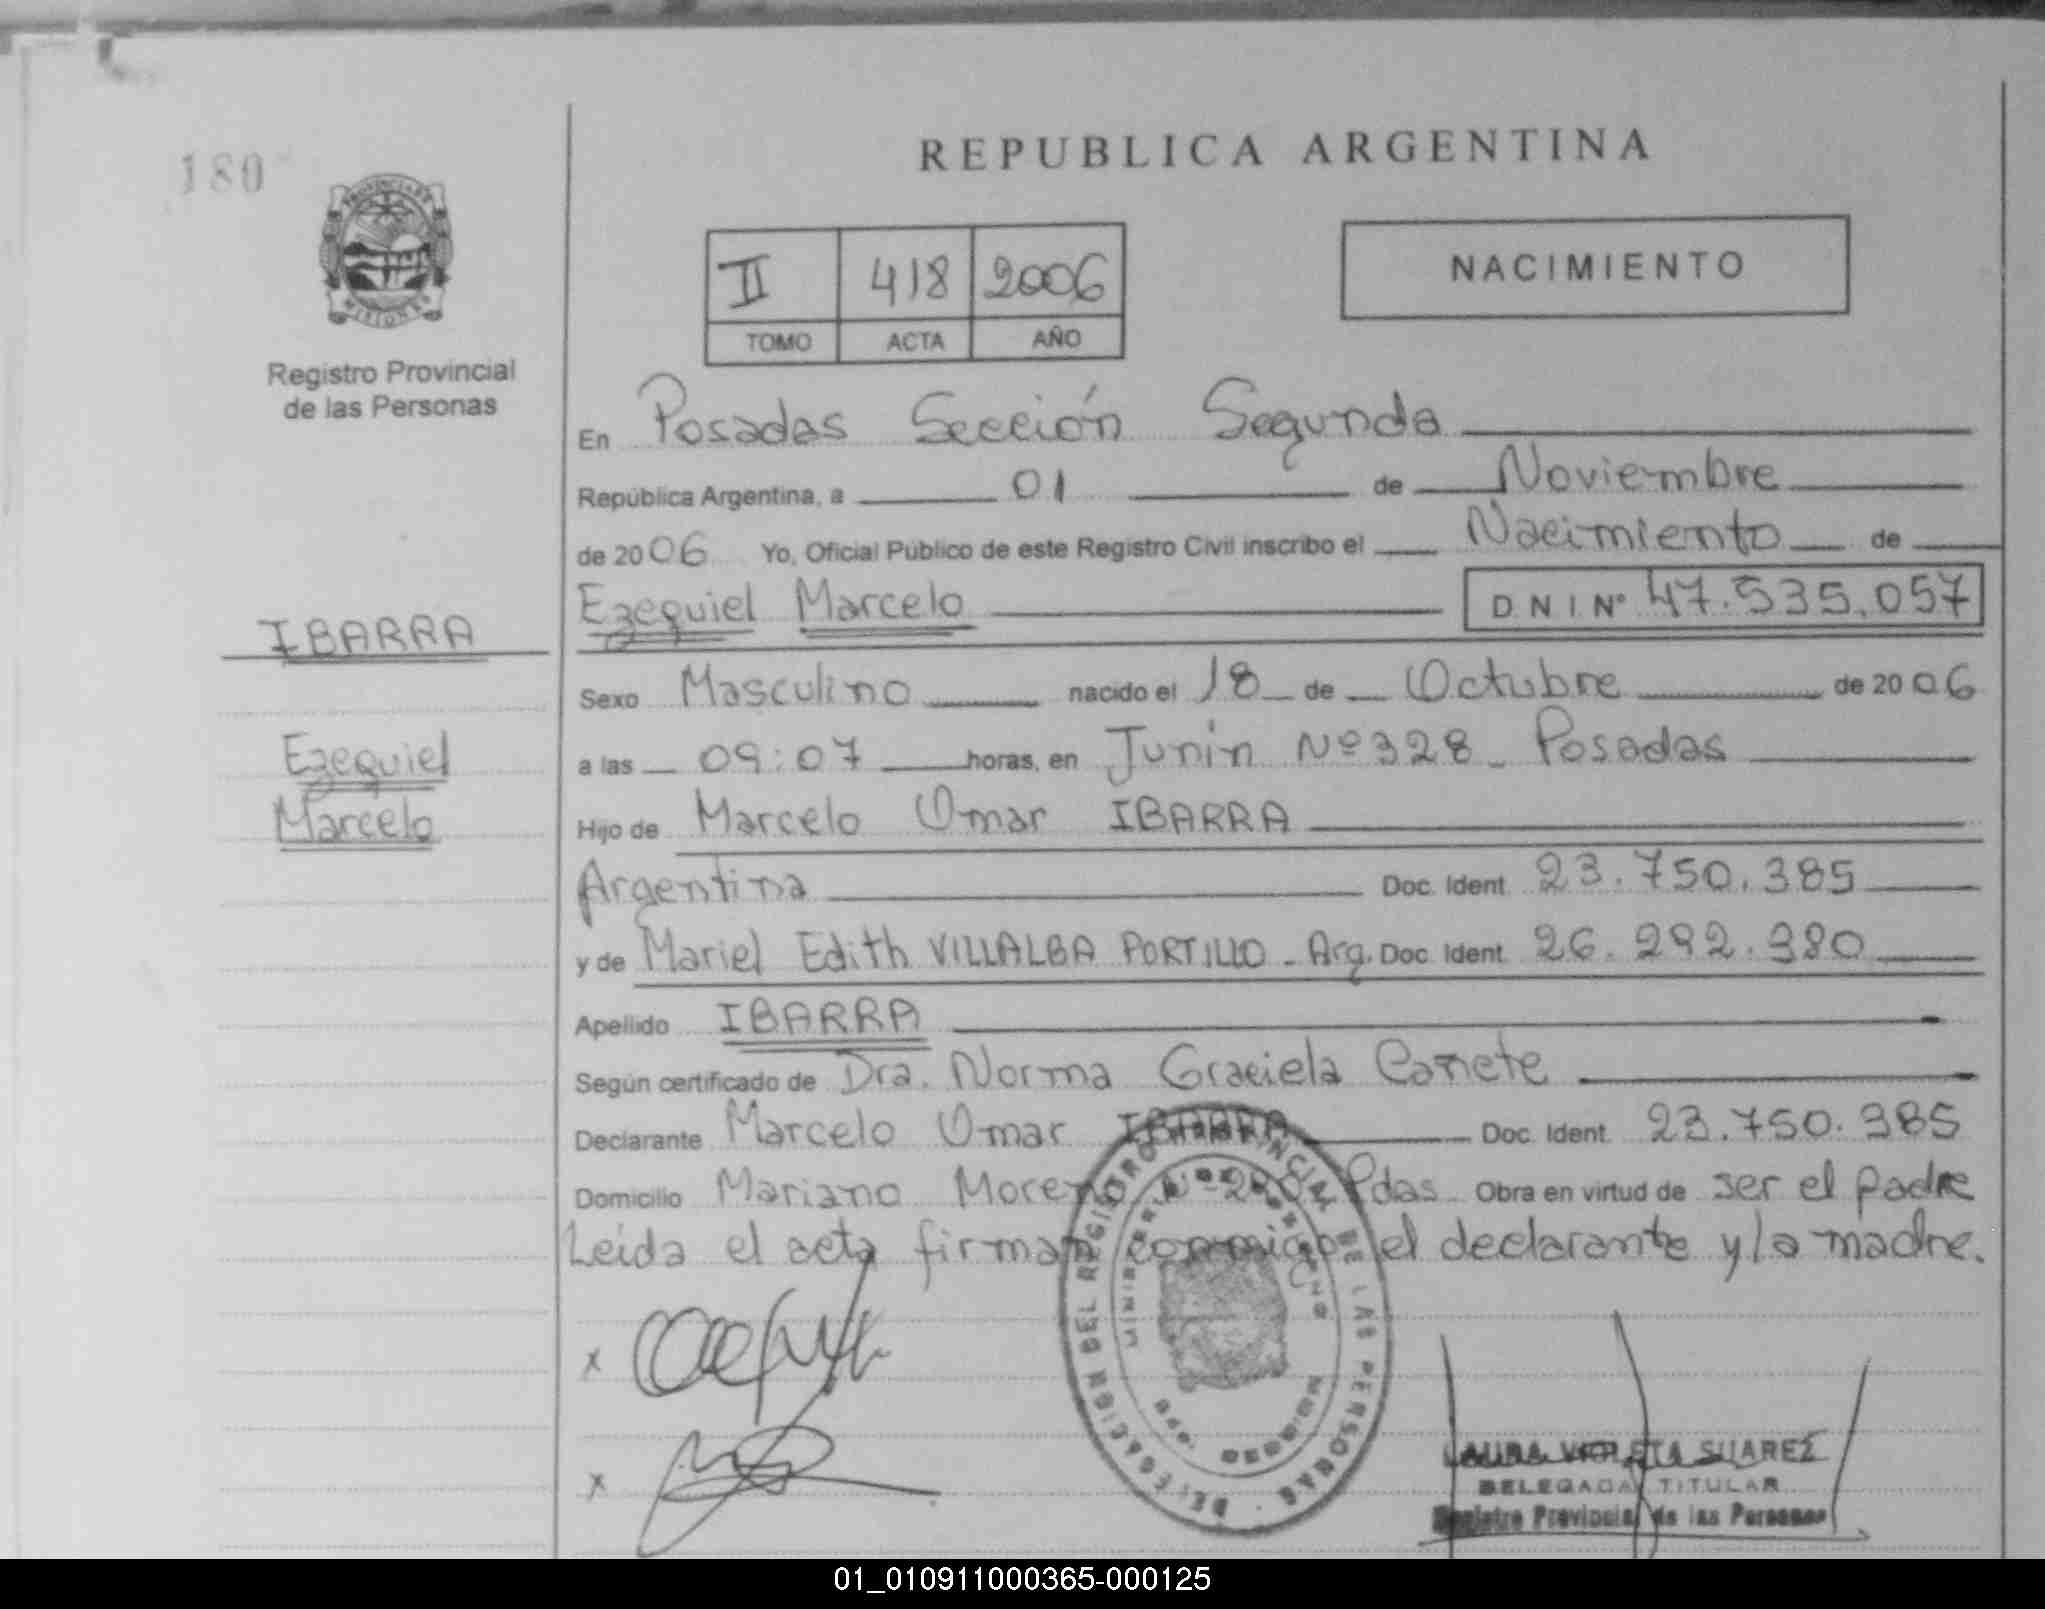 180
REPUBLICA ARGENTINA
PROVINCIA DE
MISIONES
Registro Provincial
de las Personas
II 418 2006
TOMO ACTA AÑO
NACIMIENTO
En Posadas Sección Segunda
República Argentina, a 01 de Noviembre
de 2006 Yo, Oficial Público de este Registro Civil inscribo el Nacimiento de
IBARRA
Ezequiel Marcelo D.N.I. Nº 47.535.057
Sexo Masculino nacido el 18 de Octubre de 2006
Ezequiel
Marcelo
a las 09:07 horas, en Junín Nº 328 - Posadas
Hijo de Marcelo Omar IBARRA
Argentina Doc. Ident. 23.750.385
y de Mariel Edith VILLALBA PORTILLO - Arg. Doc. Ident. 26.292.380
Apellido IBARRA
Según certificado de Dra. Norma Graciela Cañete
Declarante Marcelo Omar IBARRA Doc. Ident. 23.750.385
Domicilio Mariano Moreno Pdas Obra en virtud de ser el padre
Leída el acta firman conmigo el declarante y la madre.
x
x
DELEGACION DEL REGISTRO PROVINCIAL DE LAS PERSONAS
LAURA VIOLETA SUAREZ
DELEGADA TITULAR
Registro Provincial de las Personas
01_010911000365-000125